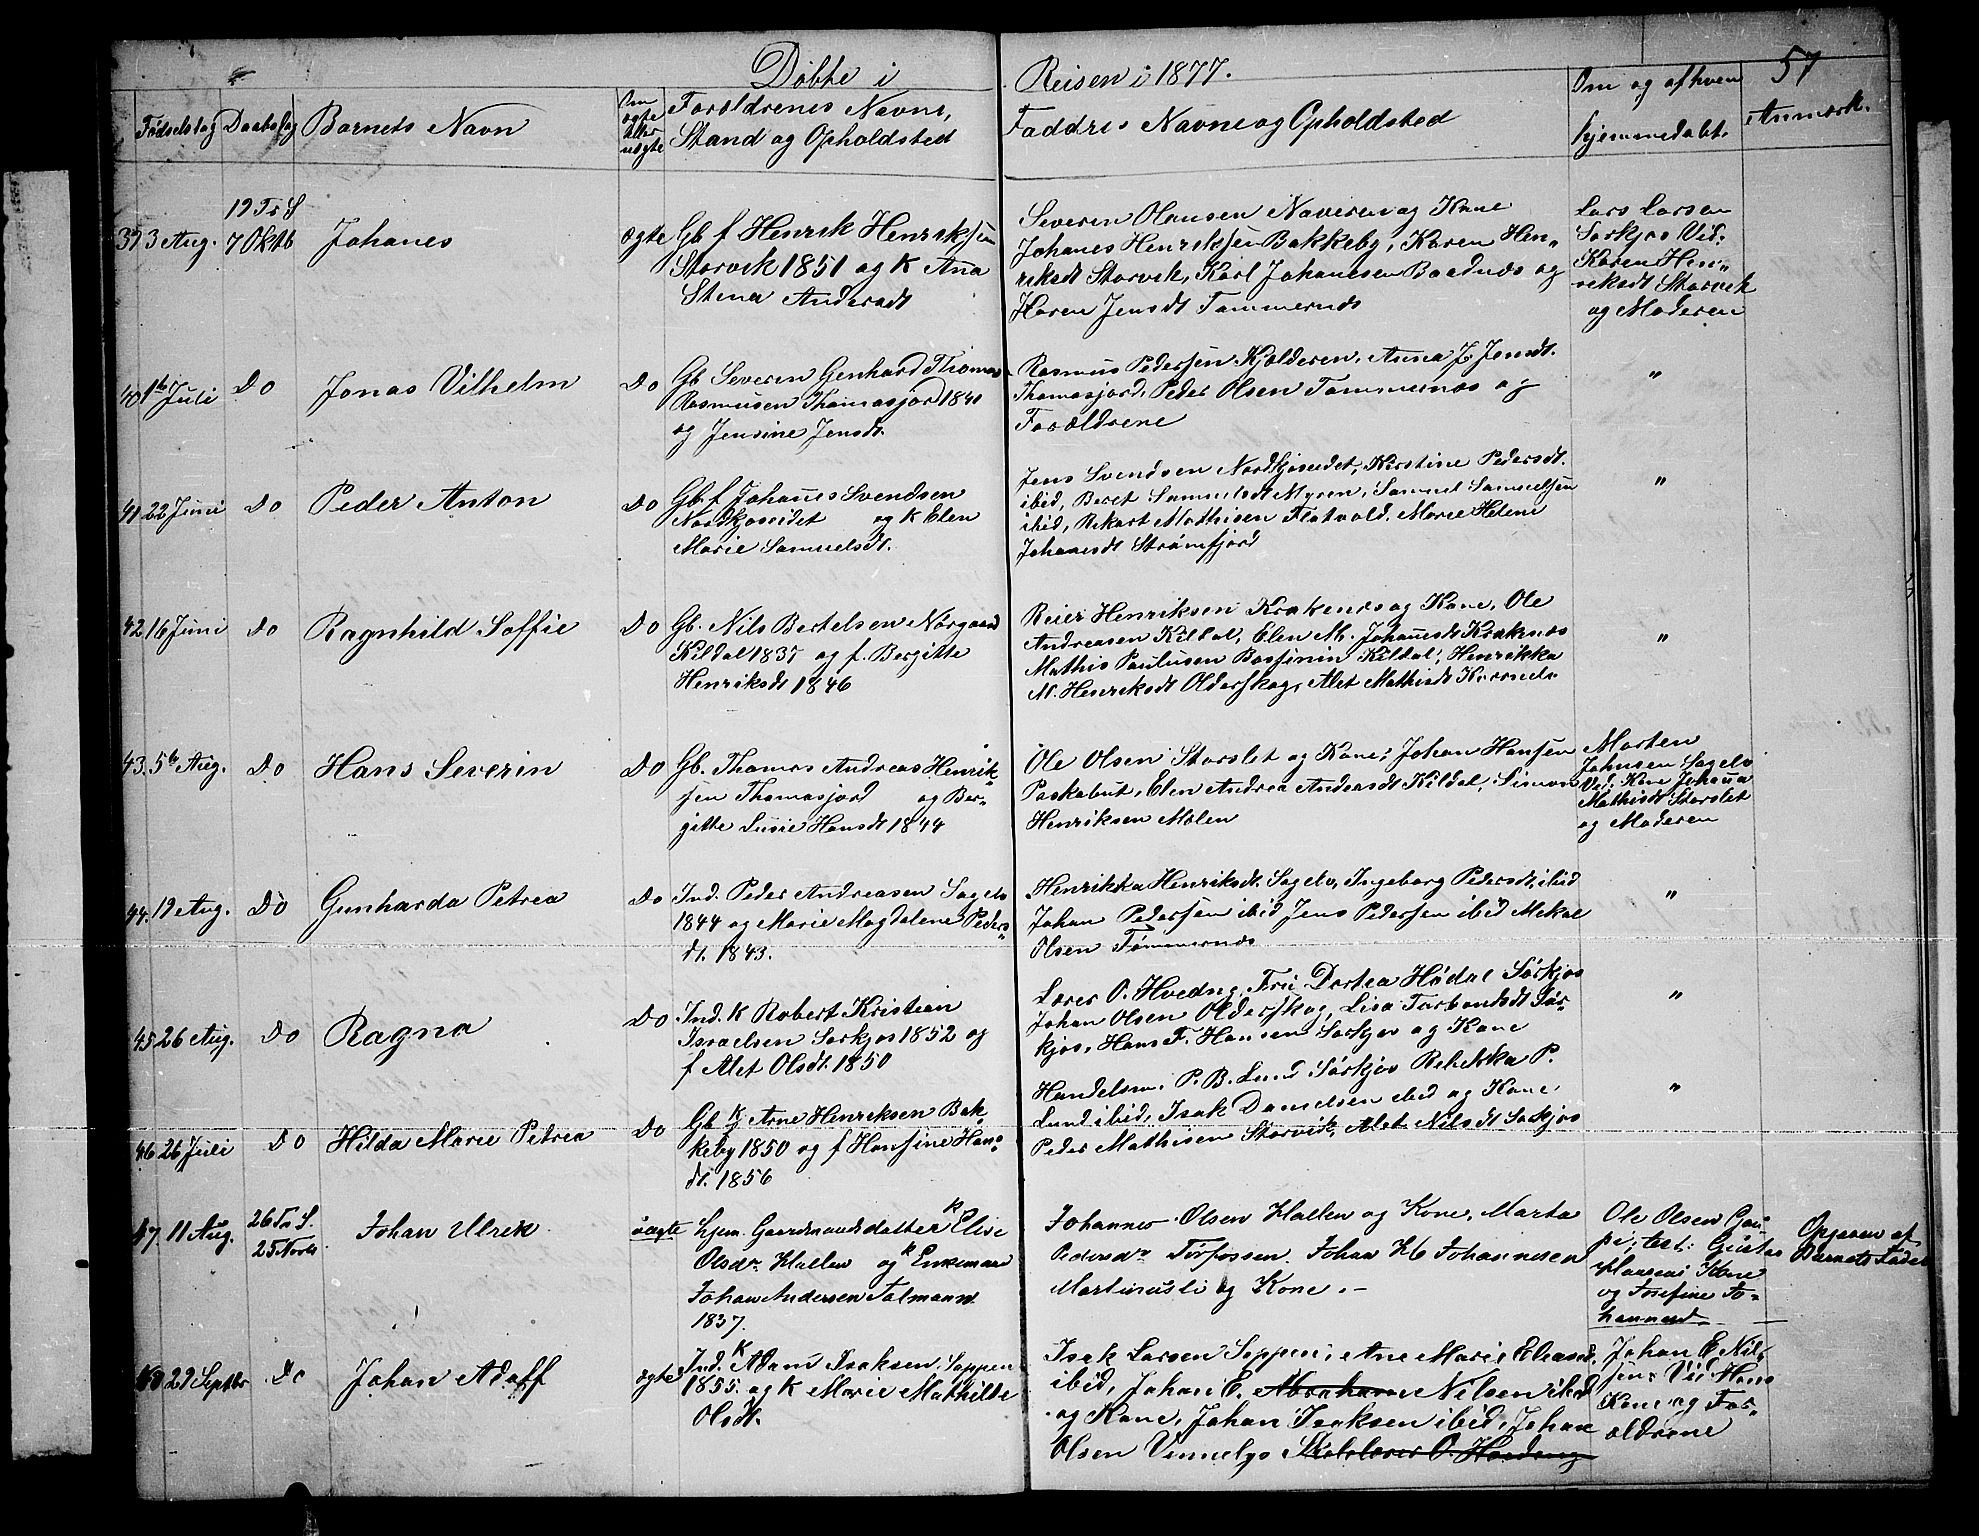 Døbte i Reisen i 1877. 57
Fødselsdag Daabsdag Barnets Navn Om ægte eller uægte Forældrenes Navne, Stand og Opholdsted Faddres Navne og Opholdsted Om og af hvem hjemmedøbt. Anmærk.
39 3 Aug. 19 Tr S 7 Oktb Johanes ægte
Gb f Henrik Henriksen
Storvik 1851 og K Ana
Stena Andersdt
Severin Hansen Naveren og Kone
Johanes Henriksen Bakkeby, Karen Hen„
riksdt Storvik, Karl Johanesen Baadnæs og
Haren Jensdt Tømmernæs
Lars Larsen
Sørkjos Vid:
Karen Hen„
riksdt Storvik
og Moderen
40 1te Juli Do Jonas Vilhelm Do
Gb Severin Genhard Thomas
Rasmusen Thomasjord 1841
og Jensine Jensdt.
Rasmus Pedersen Kjelderen, Anna J. Jensdt.
Thomasjord, Peder Olsen Tømmernæs og
Forældrene
"
41 22 Juni Do Peder Anton Do
Gb. f Johanes Svendsen
Nordkjoseidet og K Elen
Marie Samuelsdt.
Jens Svendsen Nordkjoseidet, Kirstine Pedersdt.
ibid, Beret Samuelsdt Myren, Samuel Samuelsen
ibid, Rikart Mathisen Flatvold, Marie Helene
Johanesdt Strømfjord
"
42 16 Juni Do Ragnhild Soffie Do
Gb. Nils Bertelsen Norgaard
Kildal 1837 og f. Bergitte
Henriksdt 1846
Reier Henriksen Krakenes og Kone, Ole
Andreasen Kildal, Elen M. Johanesdt Krakenæs
Mathis Paulusen Kildal, Henrikka
M. Henriksdt Olderskog, Alet Mathisdt
"
43. 5te Aug. Do Hans Severin Do
Gb. Thomas Andreas Henrik„
sen Thomasjord og Ber„
gitte Lusie Hansdt 1844
Ole Olsen Storslet og Kone, Johan Hansen
Paskabut, Elen Andrea Andersdt Kildal, Simon
Henriksen Molen
Morten
Johnsen Sagelv
Vid: Kone Johana
Mathisdt Storslet
og Moderen
44. 19 Aug. Do Gunharda Petrea Do
Ind. Peder Andreasen Sagelv
1844 og Marie Magdalene Peders„
dt. 1843.
Henrikka Henriksdt. Sagelv, Ingeborg Pedersdt, ibid
Johan Pedersen ibid Jens Pedersen ibid Mekal
Olsen Tømmernæs
"
45 26 Aug. Do Ragna Do
Ind. K Robert Kristian
Israelsen Sørkjos 1852 og
f Alet Olsdt. 1850
Lærer O. Hvedng, Fru Dortea Hødal Sørkjos
Johan Olsen Olderskog, Lisa Torbendsdt Sør„
kjos, Hans F. Hansen Sørkjos og Kone
"
46 26 Juli Do Hilda Marie Petrea Do
Gb K Arne Henriksen Bak„
keby 1850 og f Hansine Hans„
dt. 1856
Handelsm. P. B. Lund Sørkjos Rebekka P.
Lund ibid, Isak Danielsen ibid og Kone
Peder Mathisen Storvik, Alet Nilsdt Sørkjos
"
47. 11 Aug. 26 Tr S. 25 Novb Johan Ulrik uægte
hjem. Gaardmandsdatter K Elise
Olsdr Hallen og K Enkemand
Johan Andersen Talmann
1837.
Johannes Olsen Hallen og Kone, Marta
Pedersdr Torfossen. Johan H. Johannesen
Martinusli og Kone. –
Ole Olsen Gau
pe; test: Gustav
Hansens Kone
og Josefine Jo„
hannesd
Opgiven af
Barnets Fader
48 29 Septbr Do Johan Adolf ægte
Ind. K Adam Isaksen Sappen
1855. og K Marie Mathilde
Olsdt.
Isak Larsen Seppen, Ane Marie Eliasd.
ibid, Johan E. Abraham Nilsen ibid
og Kone, Johan Isaksen ibid, Johan
Olsen Vinnelys Skolelærer O. Hvedeng
Johan E Nil„
sen: Vid: Hans
Kone og For„
ældrene